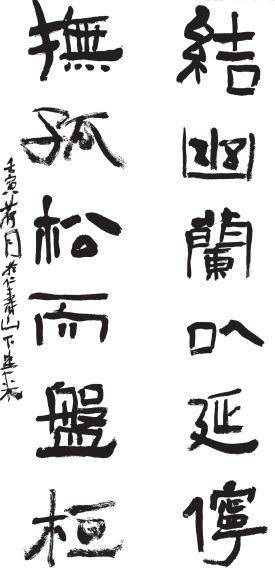 結幽蘭以延儜
撫孤松而盤桓
壬寅荷月於仁壽山下